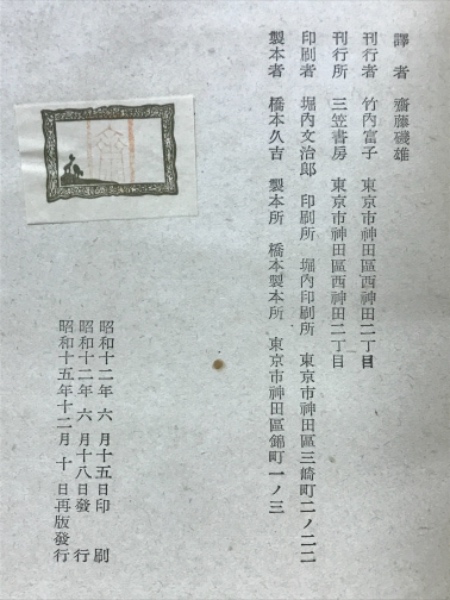 譯者 齋藤磯雄
刊行者 竹內富子 東京市神田區西神田二丁目
刊行所 三笠書房 東京市神田區西神田二丁目
印刷者 堀內文治郎 印刷所 堀內印刷所 東京市神田區三崎町二ノ二二
製本者 橋本久吉 製本所 橋本製本所 東京市神田區錦町一ノ三
昭和十二年六月十五日印刷
昭和十二年六月十八日發行
昭和十五年十二月十日再版發行